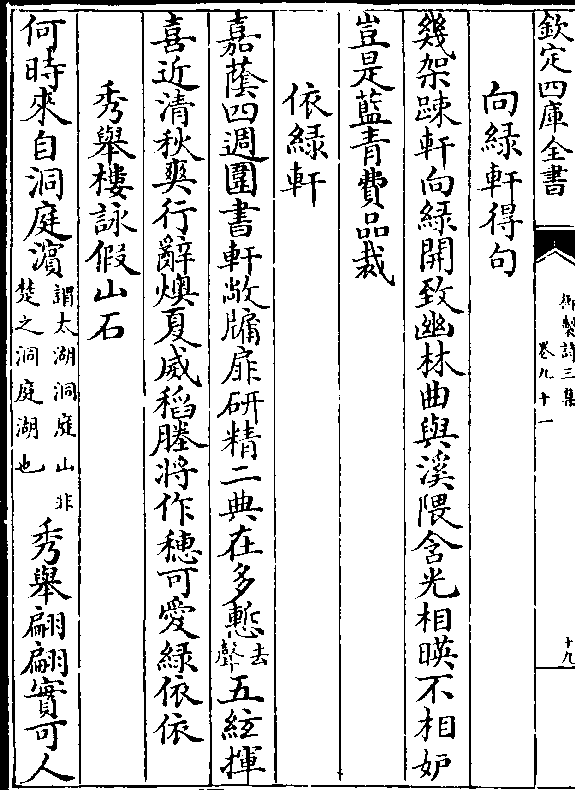 欽定四庫全書
御製詩三集
卷九十一
十九
向緑軒得句
幾架踈軒向緑開致幽林曲與溪隈含光相暎不相妒
豈是藍青費品裁
依緑軒
嘉蔭四週圍書軒敞牖扉研精二典在多慙去聲五絃揮
喜近清秋爽行辭燠夏威稻塍将作穗可愛緑依依
秀舉樓詠假山石
何時來自洞庭濵謂太湖洞庭山非楚之洞庭湖也秀舉翩翩實可人